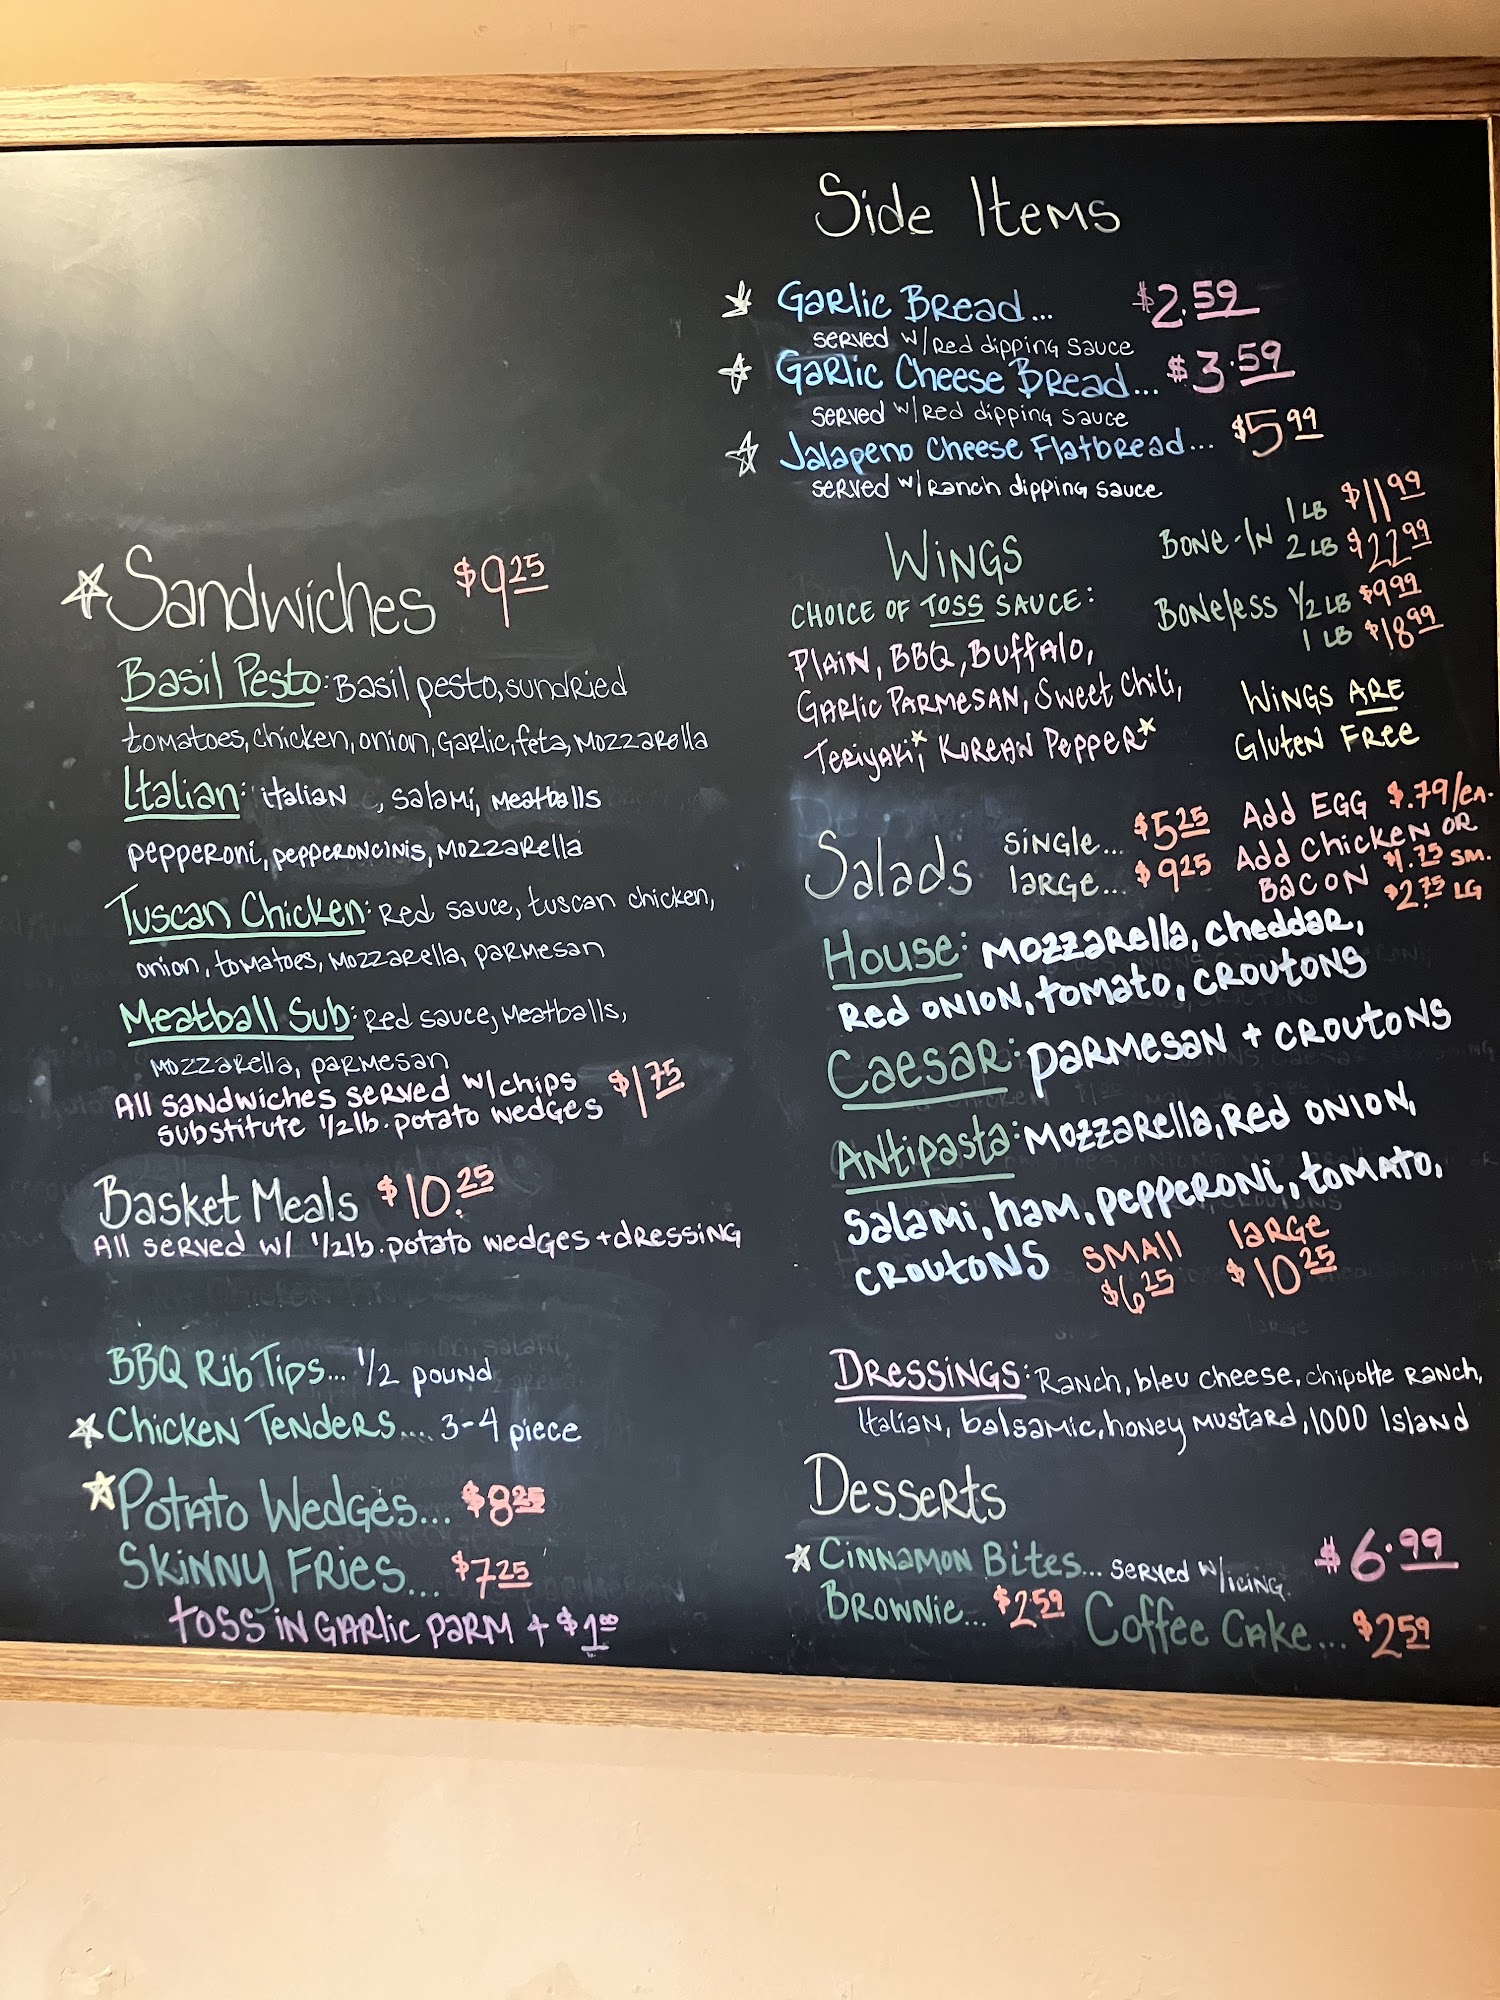 Sandwiches $9.25
Basil Pesto: Basil pesto, sundried
tomatoes, chicken, onion, garlic, feta, mozzarella
Italian: italian , salami, meatballs
pepperoni, pepperoncinis, mozzarella
Tuscan Chicken: Red sauce, tuscan chicken,
onion, tomatoes, mozzarella, parmesan
Meatball Sub: Red sauce, meatballs,
mozzarella, parmesan
All sandwiches served w/chips
substitute 1/2lb. potato wedges $1.75
Basket Meals $10.25
All served w/ 1/2lb. potato wedges + dressing
BBQ Rib Tips... 1/2 pound
Chicken Tenders.... 3-4 piece
Potato Wedges... $8.25
Skinny Fries... $7.25
toss in garlic parm + $1.00
Side Items
Garlic Bread... $2.59
served w/ Red dipping sauce
Garlic Cheese Bread... $3.59
served w/ Red dipping sauce
Jalapeno Cheese Flatbread... $5.99
served w/ Ranch dipping sauce
Wings
Bone-In 1 LB $11.99
2 LB $22.99
Choice of Toss Sauce:
Boneless 1/2 LB $9.99
1 LB $18.99
Plain, BBQ, Buffalo,
Garlic Parmesan, Sweet Chili,
Teriyaki*, Korean Pepper*
Wings ARE
Gluten Free
Salads
single... $5.25
large... $9.25
Add Egg $.79/ea.
Add Chicken or
Bacon $1.75 sm.
$2.75 LG
House: mozzarella, cheddar,
Red onion, tomato, croutons
Caesar: parmesan + croutons
Antipasta: mozzarella, red onion,
salami, ham, pepperoni, tomato,
croutons
small large
$6.25 $10.25
Dressings: Ranch, bleu cheese, chipotte Ranch,
Italian, balsamic, honey mustard, 1000 Island
Desserts
Cinnamon Bites... served w/icing. $6.99
Brownie... $2.59 Coffee Cake... $2.59